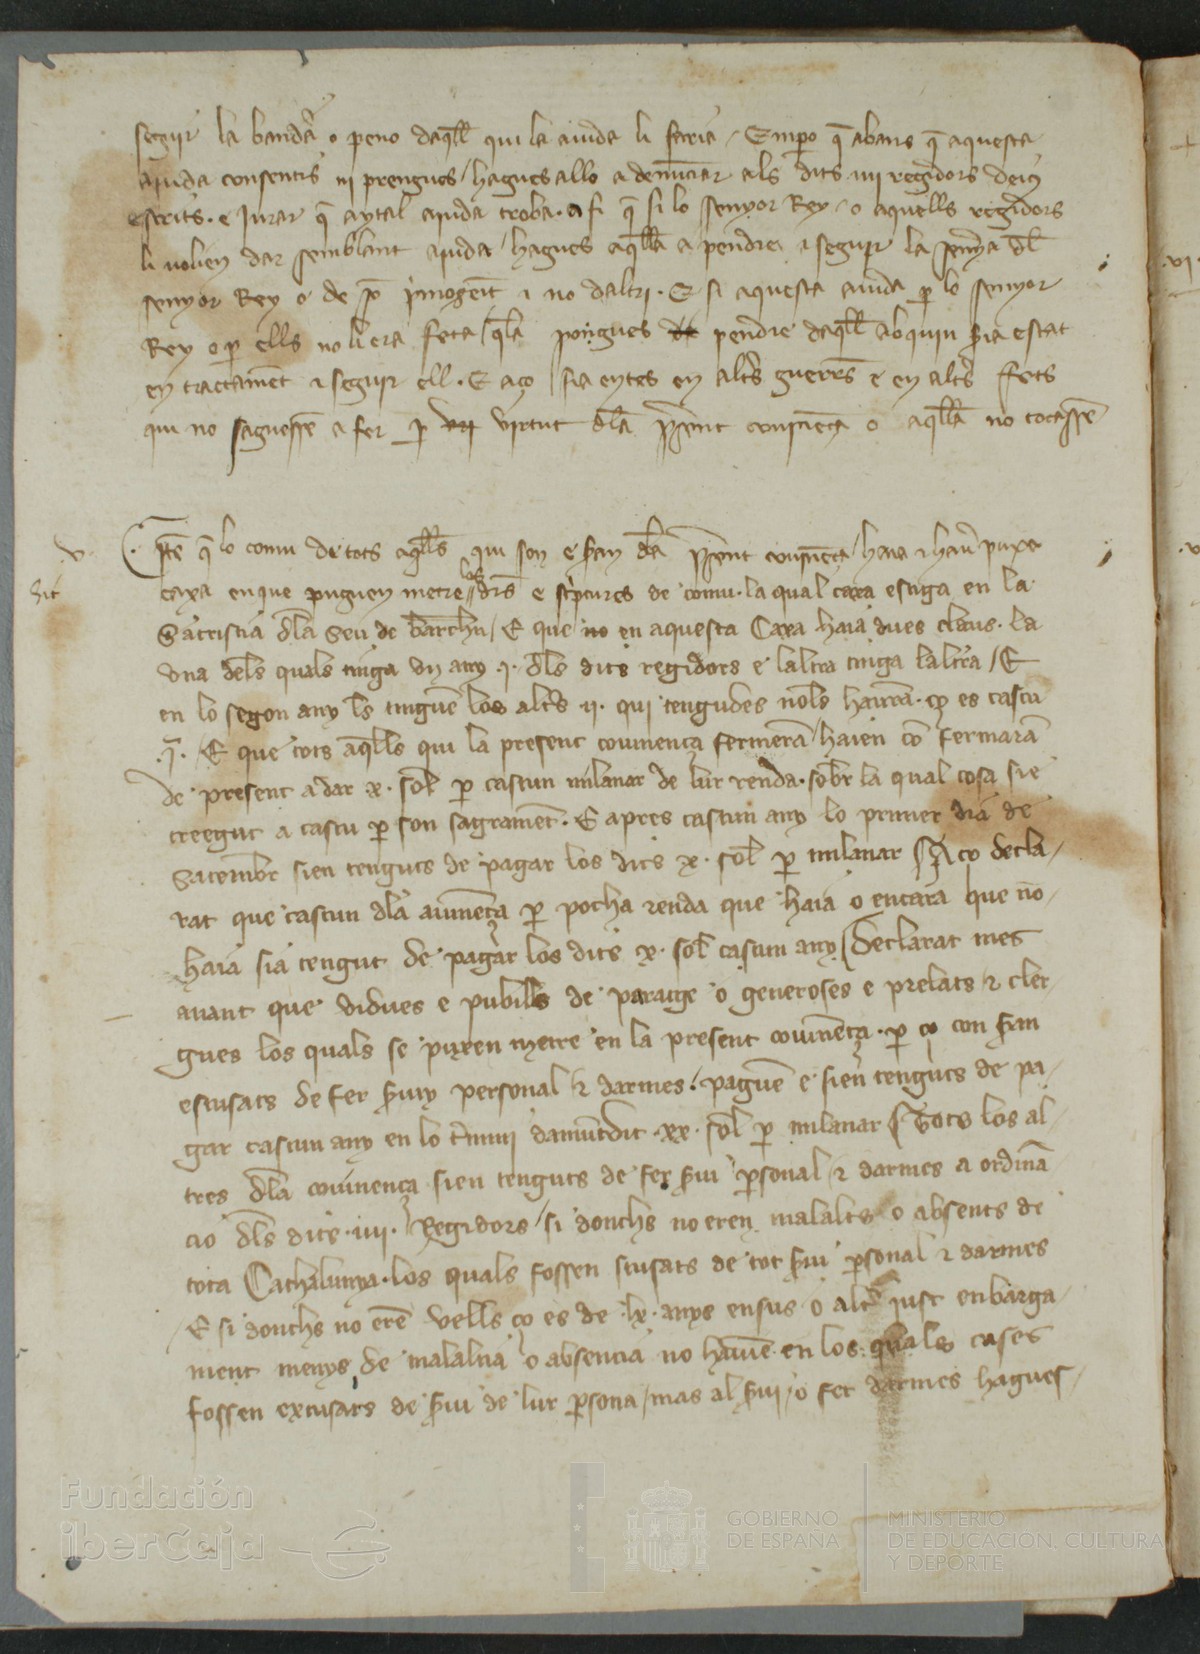 seguir la bandã o peno daq̃ll qui la aiuda li faria / Empero q̃ abans q̃ aquesta
aiuda consentis ni prengues / hagues allo a denũciar als dits iiii regidors deiꝯ
escrits · e jurar q̃ aytal aiuda troba · a fi q̃ si lo senyor Rey · o aquells regidors
li volien dar semblant aiuda / hagues aq̃lla a pendre e seguir la senyã dl̃
senyor Rey o de so p̃mogenit e no daltri · E si aquesta aiuda ꝑ lo senyor
Rey o ꝑ ells no li era feta / q̃la pogues pendre daq̃ll ab qui ne sia estat
en tractamẽt e seguir ell · E aço sia entes en altr̃s guerres e en altr̃s fets
qui no saguessẽ a fer ꝑ virtut dl̃a p̃sent couinẽça o aq̃lla no tocassẽ
v
Itẽ q̃ lo comu de tots aq̃lls qui son e seran dl̃a p̃sent couinẽça / haia
caxa en que puguen metre los drs̃ e sc̃ptures de comu · la qual caxa estiga en la
Sacristia dl̃a Seu de barchñ / E que en aquesta Caxa haia dues claus · la
vna dels quals tinga vn any ·i· dl̃s dits regidors e laltra tinga laltra / E
en lo segon any les tinguẽ los altr̃s ·ii· qui tengudes nols hauran · ço es cascu
·iͣ· / E que tots aq̃lls qui la present couinença fermerã / haien cõ fermarã
de present a dar x · sol̃ ꝑ cascun milanar de lur renda · sobr̃ la qual cosa sie
creegut a cascu ꝑ son sagramẽt · E apres cascun any lo primer dia de
Satembr̃ sien tenguts de pagar los dits x · sol̃ ꝑ milanar / Aço decla/
rat que cascun dl̃a auinẽça ꝑ pocha renda que haia o encara que no/
haia sia tengut de pagar los dits x · sol̃ cascun any / Declarat mes
auant que vidues e pubills de paratge o generoses e prelats e cler/
gues los quals se puxen metre en la present couinẽça · ꝑ ço con seran
escusats de fer seruy personal e darmes / paguẽ e sien tenguts de pa/
gar cascun any en lo t̃mini damũtdit · xx · sol̃ ꝑ milanar / Tots los al/
tres dl̃a couinença sien tenguts de fer s̃ui ꝑsonal / e darmes a ordina/
cio dl̃s dits · iiii · Regidors / si donchs no eren malalts o absents de
tota Cathalunya · los quals fossen scusats de tot s̃ui ꝑsonal e darmes
E si donchs no erẽ vells ço es de · lx · anys ensus o altr̃ just enbarga/
ment menys de malaltia o absencia no hauiẽ · en los quals cases
fossen excusats de s̃ui de lur ꝑsona / mas al s̃ui / o fer darmes hagues/
Fundación
iberCaja
GOBIERNO
DE ESPAÑA
MINISTERIO
DE EDUCACIÓN, CULTURA
Y DEPORTE